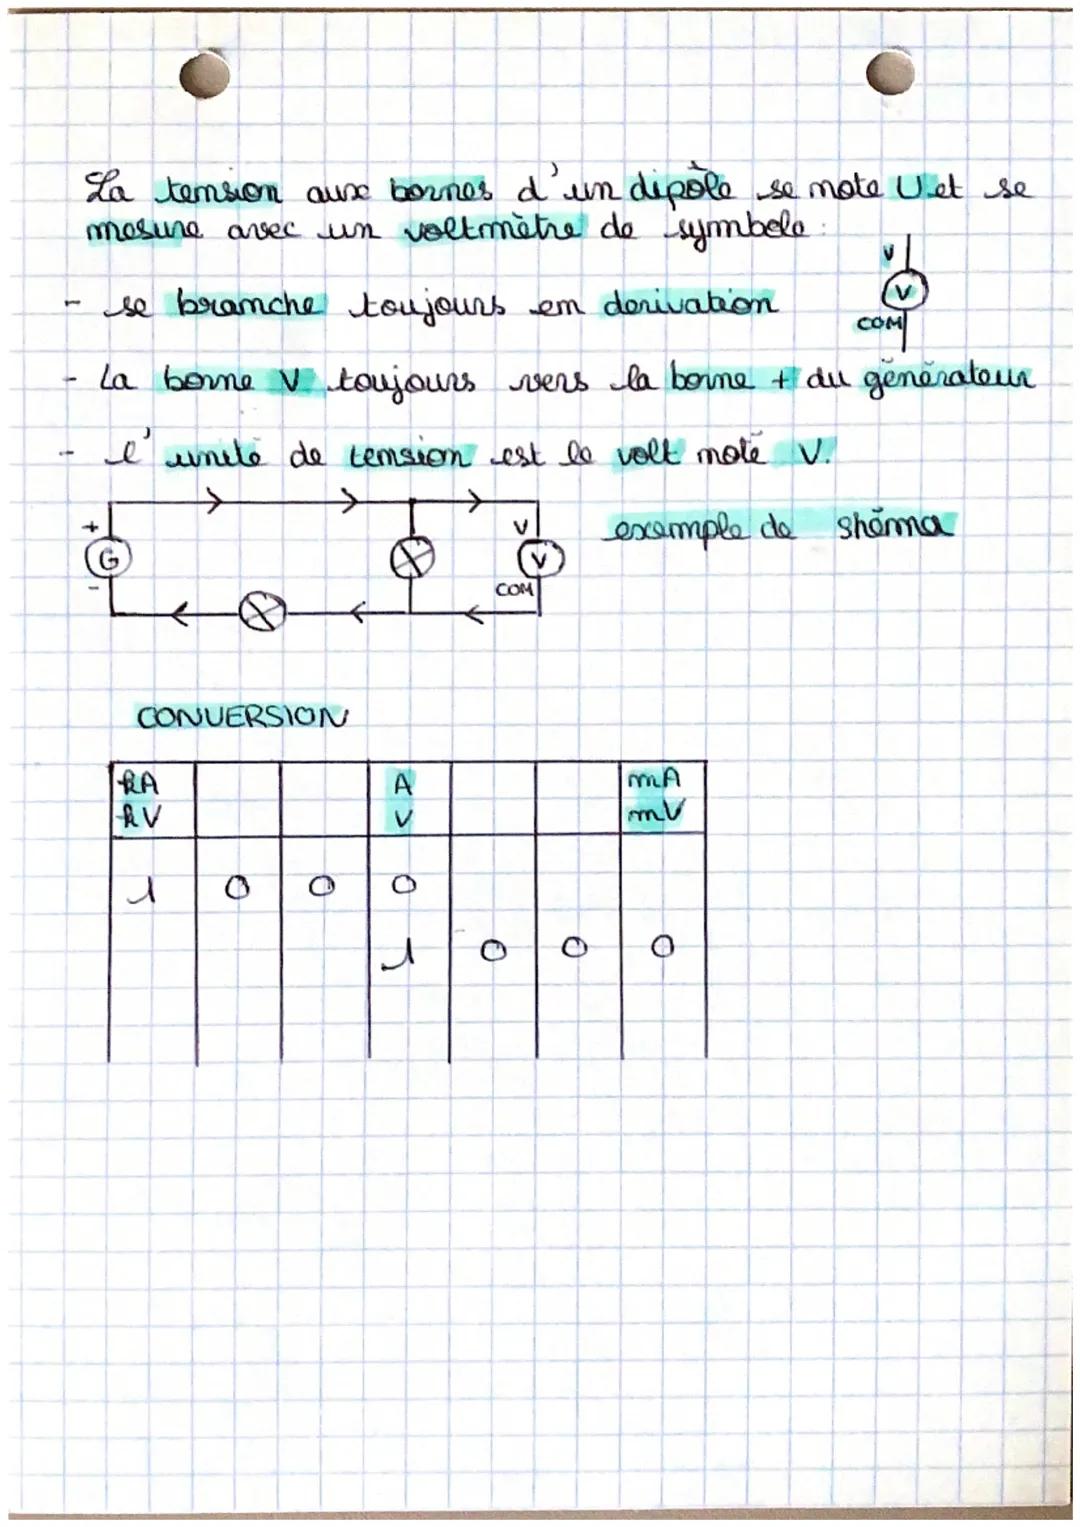 La tension aux bornes d'un dipôle se note U et se
mesure avec un voltmètre de symbole :
V
V
COM
- se branche toujours en derivation
- La borne V toujours vers la borne + du générateur
- l'unité de tension est le volt noté V.
+
G
-
V
V
COM
exemple de shéma
CONVERSION
kA A mA
kV V mV
1 0 0 0
1 0 0 0